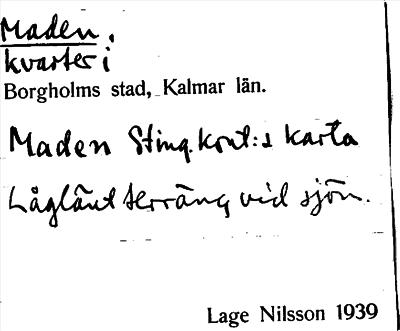 Maden,
kvarter i
Borgholms stad, Kalmar län.
Maden Sting.kont:s karta
Låglänt terräng vid sjön.
Lage Nilsson 1939